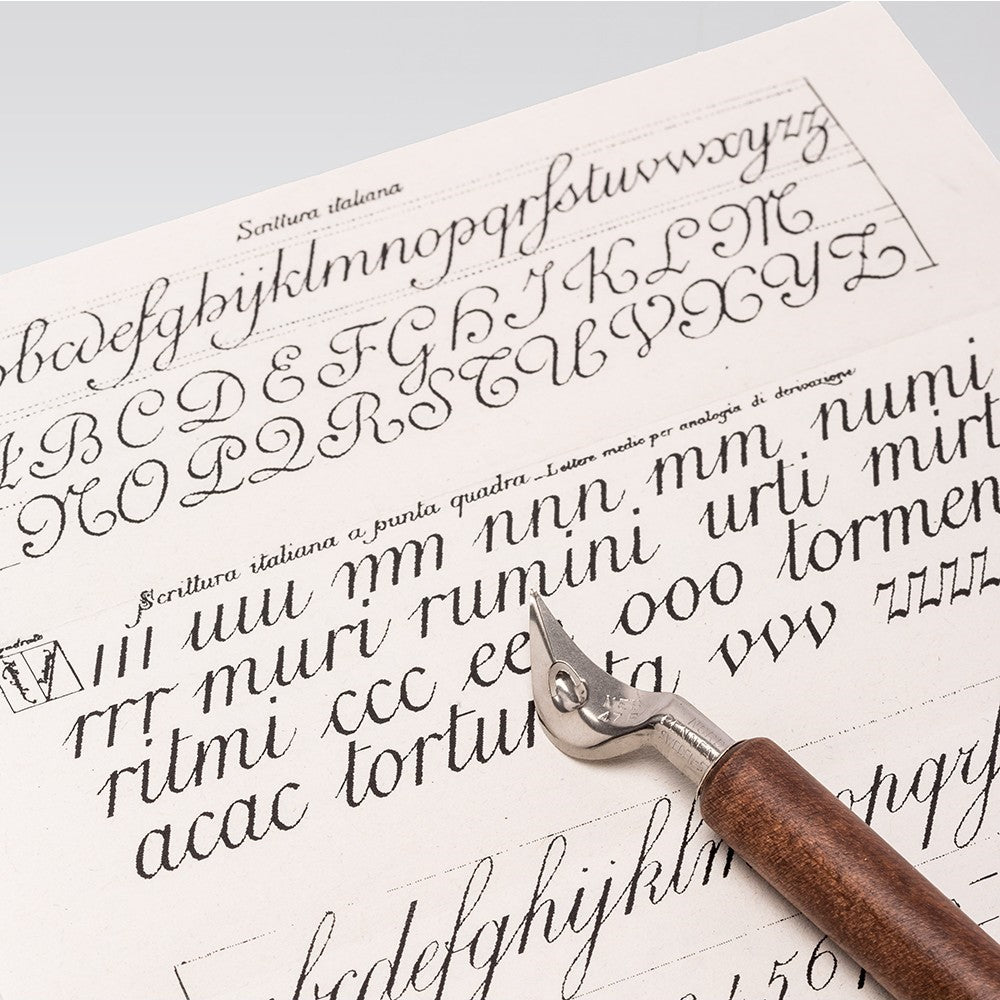 Scrittura italiana
abcdefghijklmnopqrfstuvwxyzz
A B C D E F G H I K L M
N O P Q R S T U V X Y Z
Scrittura italiana a punta quadra - Lettere medie per analogia di derivazione
iii uuu mm nnn mm numi
rrr muri rumini urti mirt
ritmi ccc ee ooo tormen
acac tortu ta vvv zzzz
bcdefghijklm opqrf
4 5 6